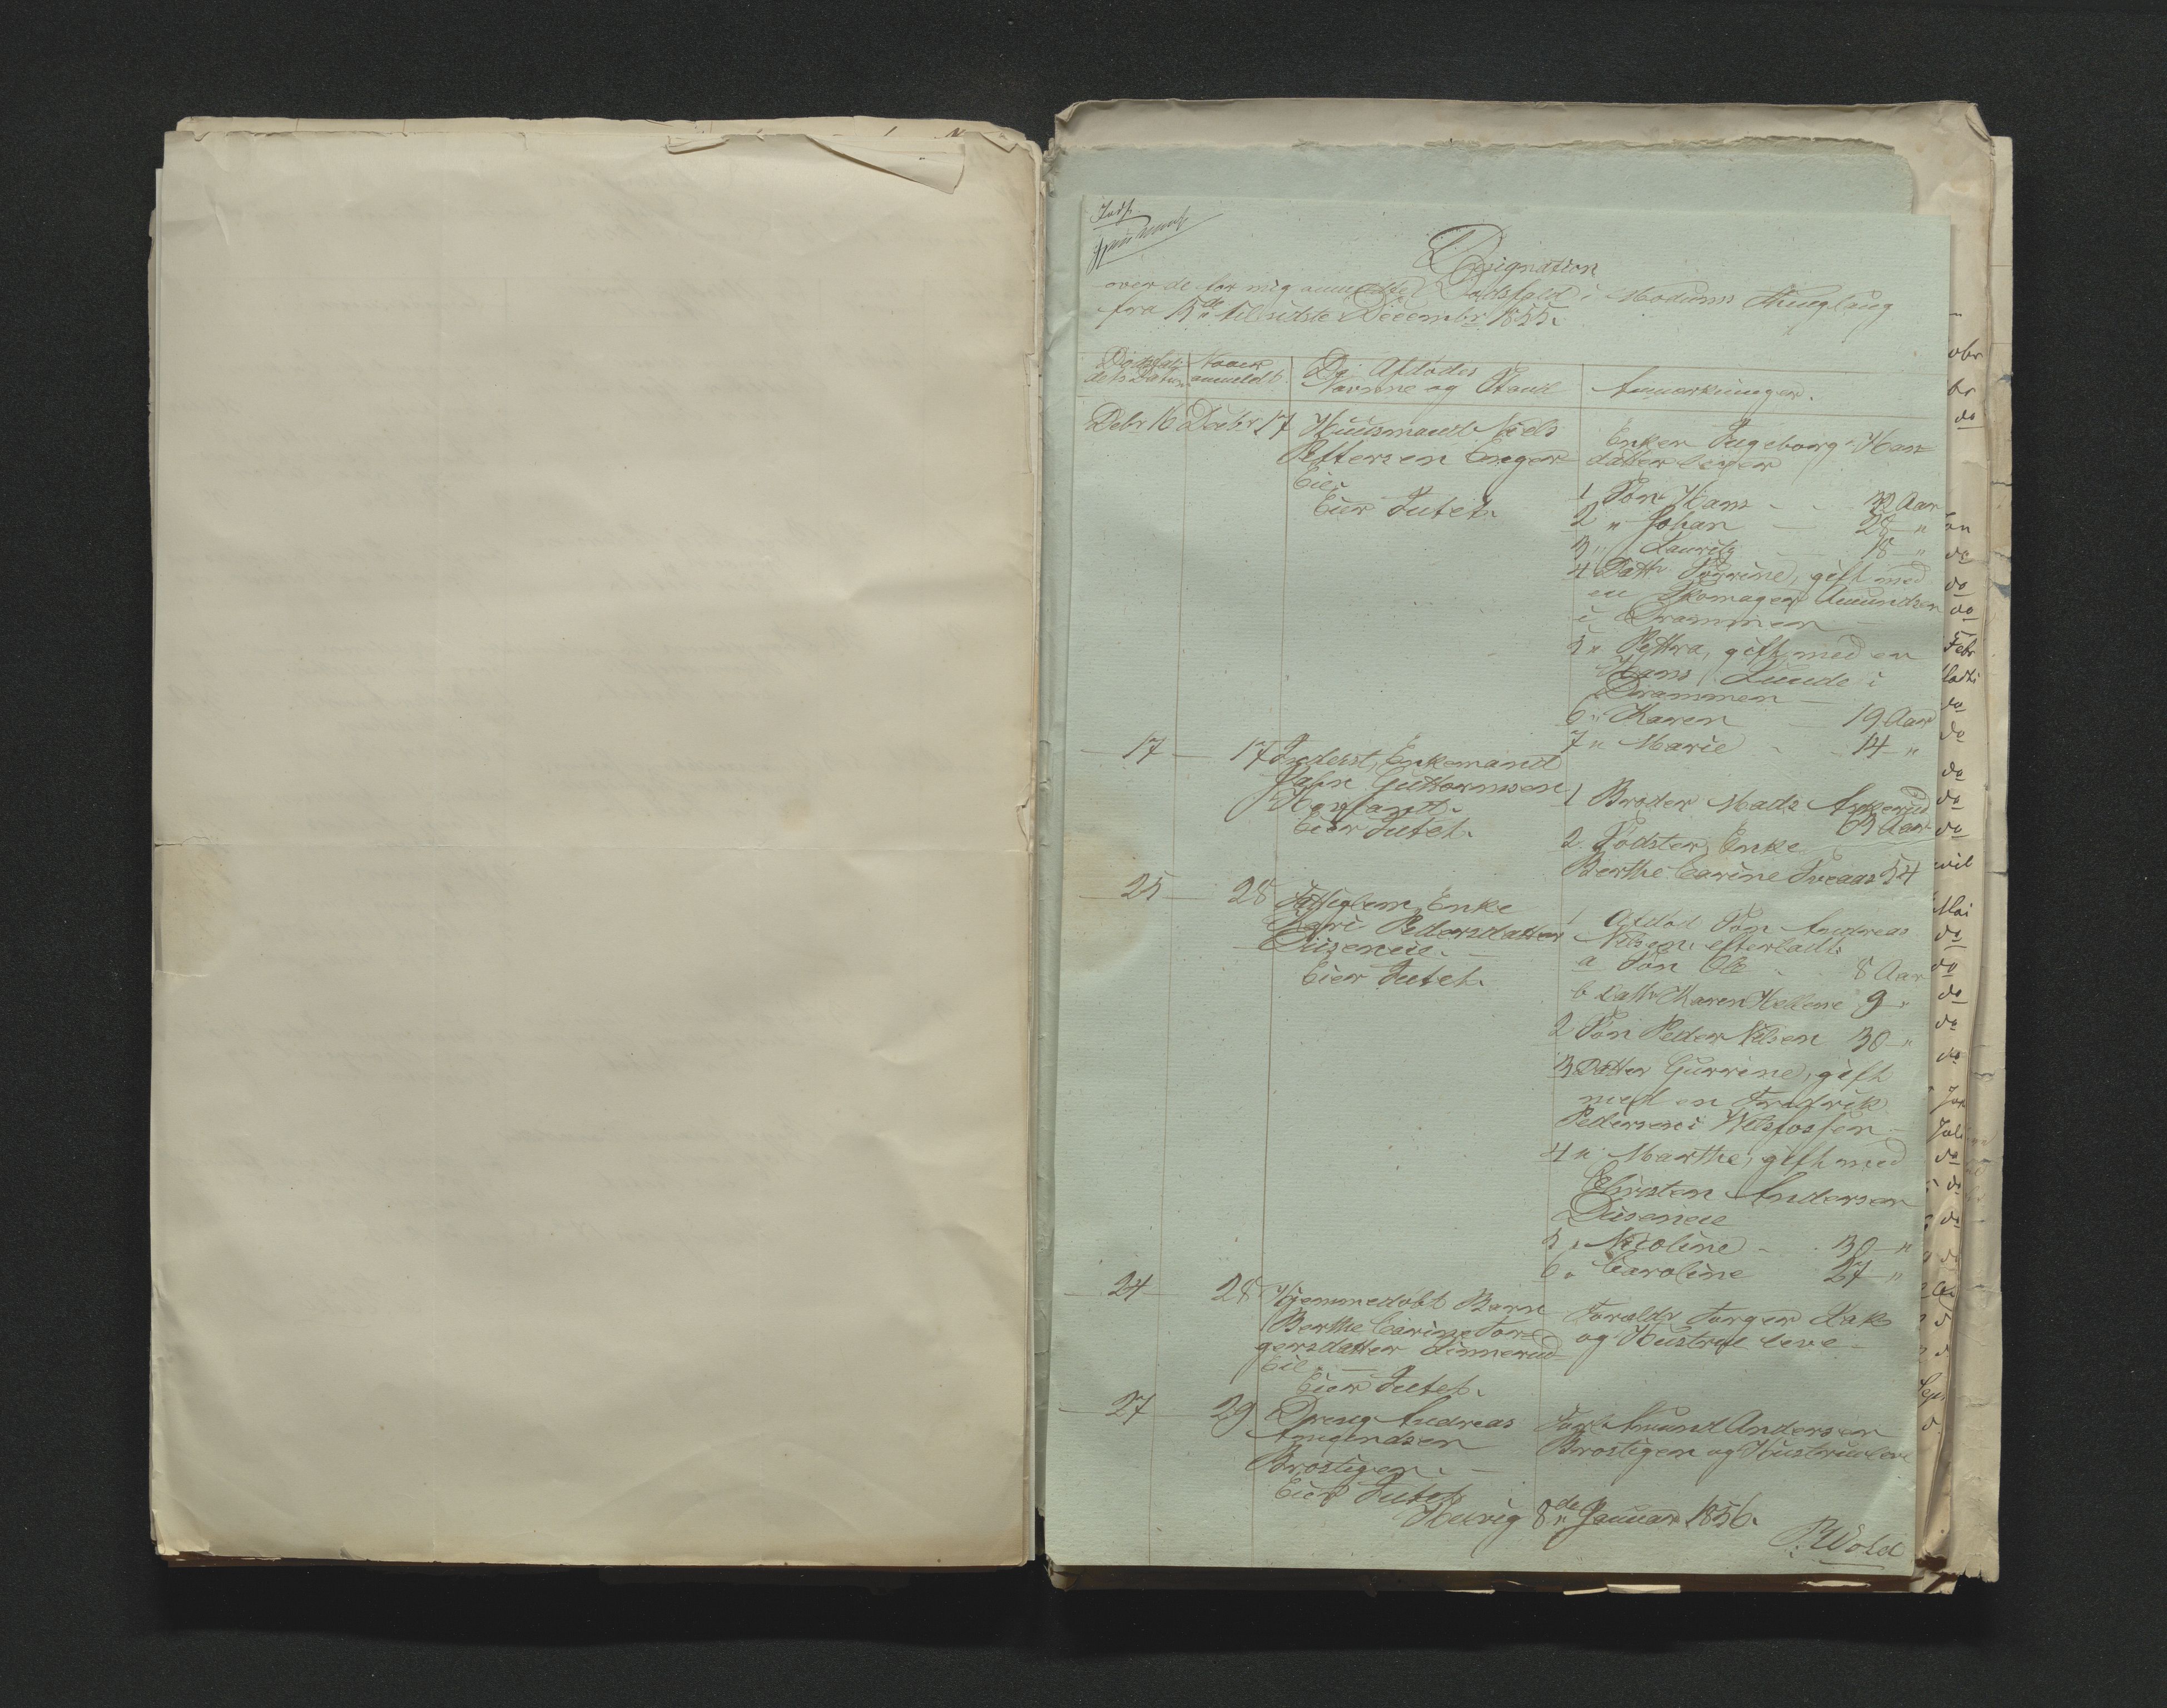 Designation
over de for mig anmeldte Dødsfald i Modums Thinglaug
fra 15de til sidste Decembr 1855.
Dødsfal- Naar De Afdødes Anmærkninger.
dets Datum anmeldt. Navne og Stand
Debr 16 Decbr 17 Huusmand Niels Enken Ingeborg Hans-
Pettersen Enger- datter lever
Eie. 1 Søn Hans 32 Aar
Eier Intet. 2 " Johan 28 "
3 " Lauritz 18 "
4 Datt. Sørine, gift med
en Skomager Amundsen
i Drammen
5 " Pettra, gift med en
Hans Lunde i
Drammen
6 " Karen 19 Aar
7 " Marie 14 "
17 17 Inderst, Enkemand
John Guttormsen 1 Broder Mads
63 Aar
Eier Intet. 2 Sødster, Enke
Berthe Carine 54
25 28 Fattiglem, Enke
Kari Pedersdatter 1 Afdød Søn Andreas
Duseneie. Nilsen, efterladt:
Eier Intet. a Søn Ole 8 Aar
b Dattr Karen Hellene 9 "
2 Søn Peder Nilsen 30 "
3 Datter Gurine, gift
med en Fredrik
Pedersen i Vilsfossen
4 " Marthe, gift med
Christen Andersen
Duseneie
5 " Nicoline 30 "
6 " Caroline 27 "
24 28 Hjemmedøbt Barn Foreldr Torger Lak
Berthe Carine Tor- og Hustrue leve
gersdatter
Eie
Eier Intet.
27 29 Dreng Andreas Forl: Amund Andersen
Amundsen Brostigen og Hustrue leve
Brostigen.
Eier Intet
Hervig 8de Januar 1856.
P. Wold